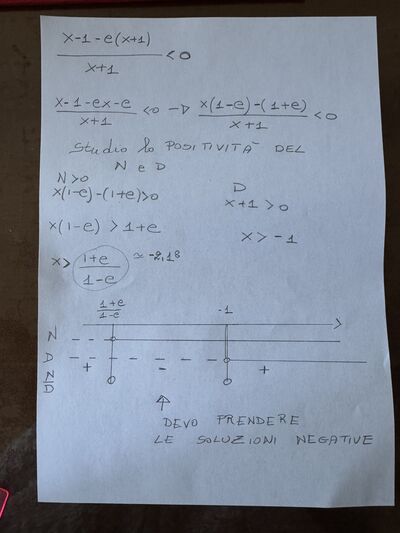 x-1-e(x+1)
x+1
<0
x-1-ex-e
x+1
<0 → x(1-e)-(1+e)
x+1
<0
Studio la POSITIVITÀ DEL
N e D
N>0
x(1-e)-(1+e)>0
D
x+1>0
x(1-e) > 1+e
x > -1
x> 1+e
1-e
≃ -2,18
1+e
1-e
-1
N
D
N
D
+ - +
DEVO PRENDERE
LE SOLUZIONI NEGATIVE